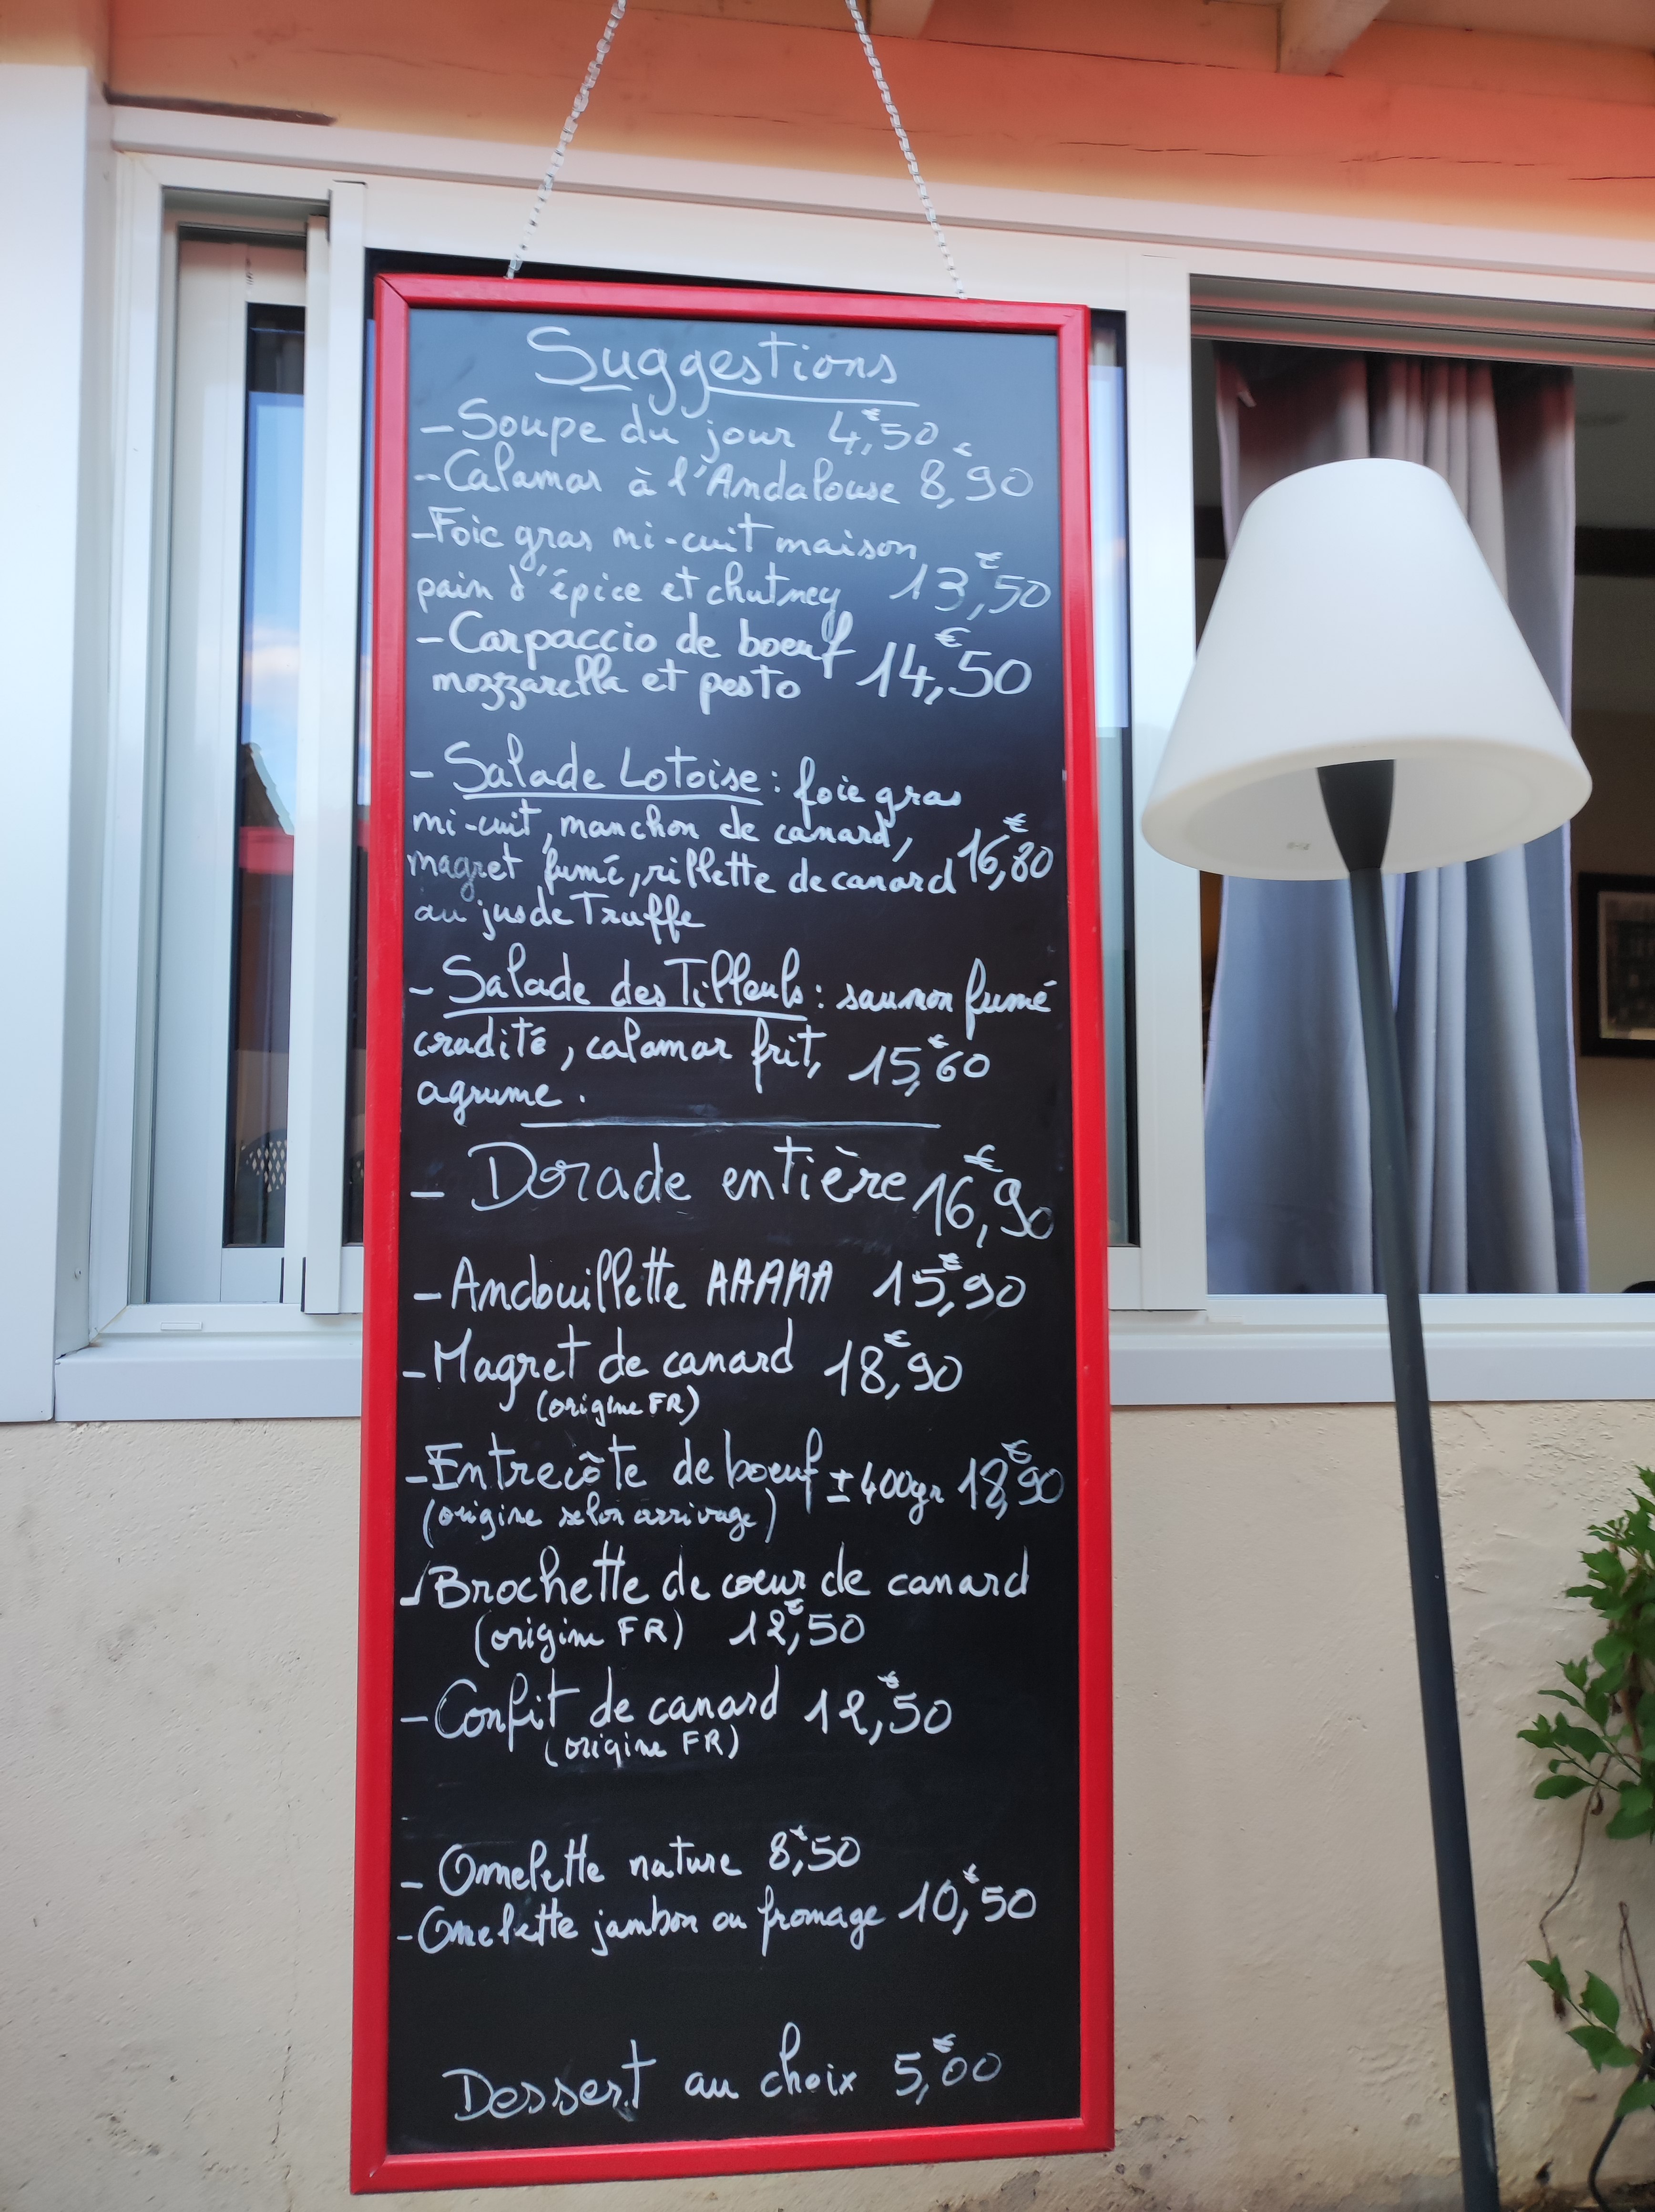 Suggestions
- Soupe du jour 4,€50
- Calamar à l'Andalouse 8,€90
- Foie gras mi-cuit maison
pain d'épice et chutney 13,€50
- Carpaccio de boeuf
mozzarella et pesto 14,€50
- Salade Lotoise : foie gras
mi-cuit, manchon de canard,
magret fumé, rillette de canard 16,€80
au jus de Truffe
- Salade des Tilleuls : saumon fumé
crudité, calamar frit, 15,€60
agrume.
- Dorade entière 16,€90
- Andouillette AAAAA 15,€90
- Magret de canard 18,€90
(origine FR)
- Entrecôte de boeuf ± 400gr 18,€90
(origine selon arrivage)
- Brochette de coeur de canard
(origine FR) 12,€50
- Confit de canard 12,€50
(origine FR)
- Omelette nature 8,€50
- Omelette jambon ou fromage 10,€50
Dessert au choix 5,€00